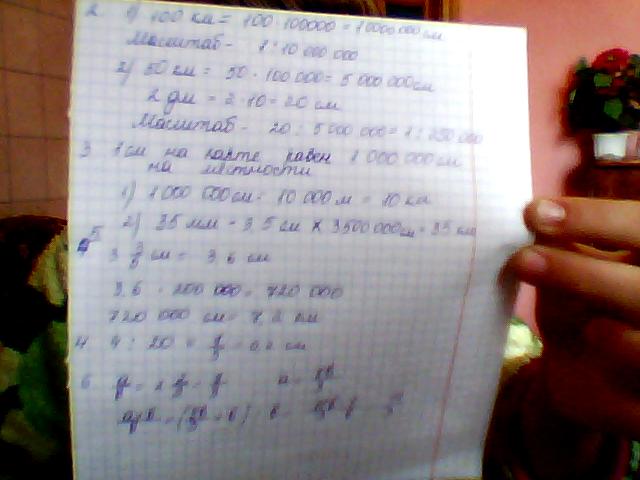 2 1) 100 км = 100 · 100000 = 10000000 см
Масштаб - 1 : 10 000 000
2) 50 км = 50 · 100 000 = 5 000 000 см
2 дм = 2 · 10 = 20 см
Масштаб - 20 : 5 000 000 = 1 : 250 000
3 1 см на карте равен 1 000 000 см
на местности
1) 1 000 000 см = 10 000 м = 10 км
2) 35 мм = 3,5 см × 3500 000 см = 35 км
5 3 3/5 см = 3,6 см
3,6 · 200 000 = 720 000
720 000 см = 7,2 км
4 4 : 20 = 0,2 см
6